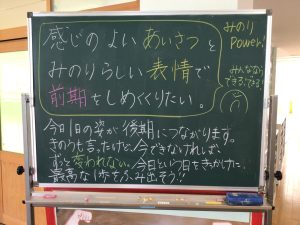 感じのよいあいさつと
みのりらしい表情で
前期をしめくくりたい。
みのり
Power!
みんななら
できる!できる!
今日1日の姿が後期につながります。
きのうも言ったけど、今できなければ、
ずっと変われない。今日という日をきっかけに、
最高な1歩をふみ出そう!!